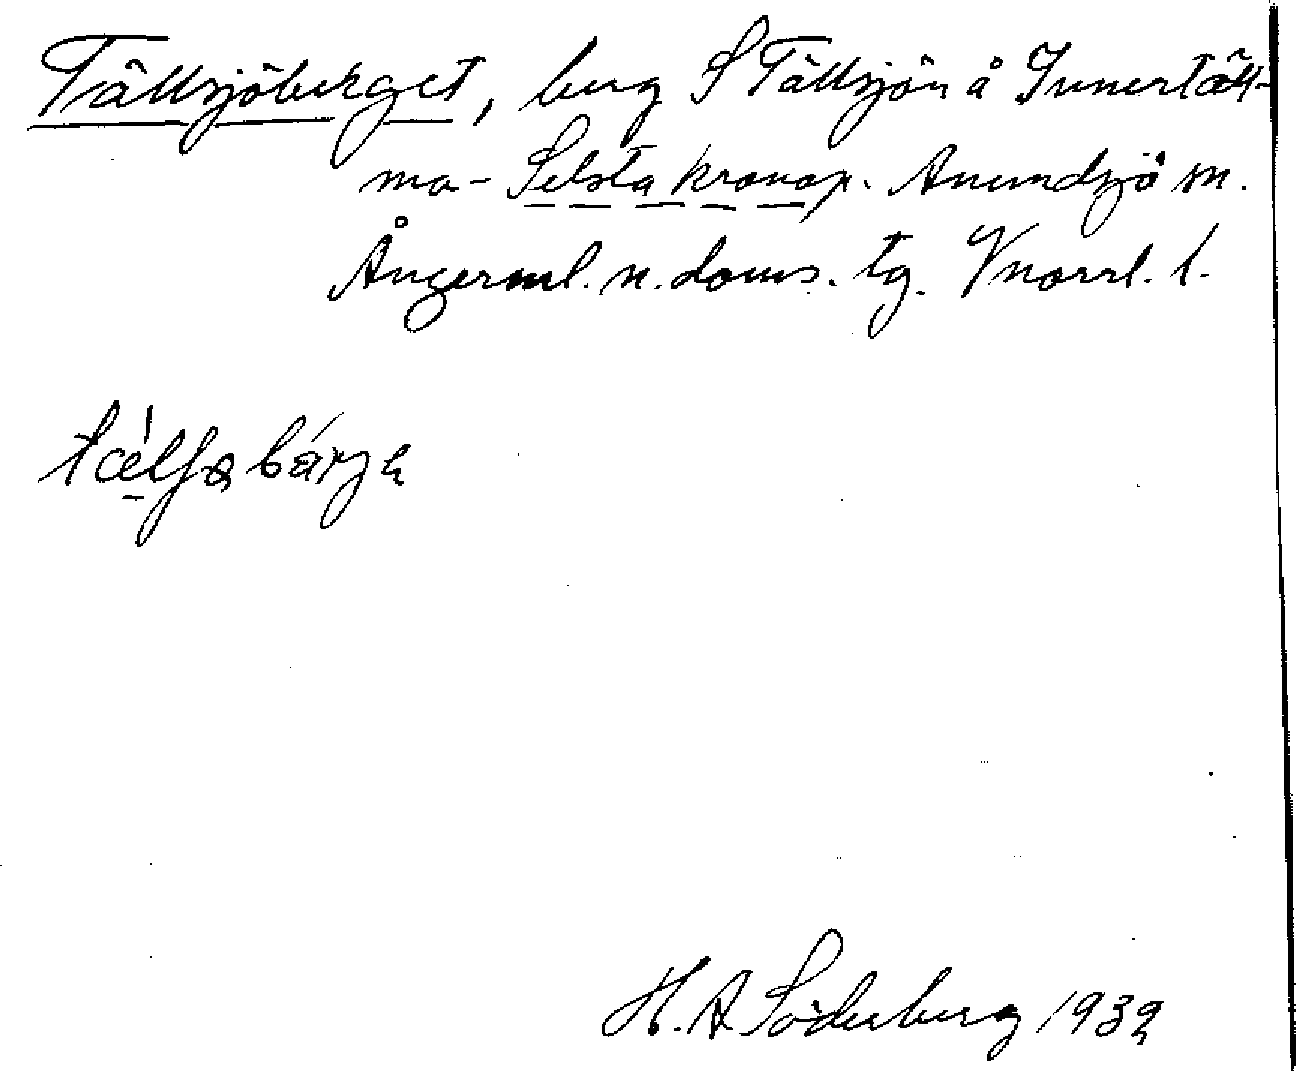 Tällsjöberget, berg S Tällsjön å Innertäll-
mo-Selsta kronop. Anundsjö sn.
Ångerml. n. doms. tg. Vnorrl. l.
H. A. Söderberg 1932